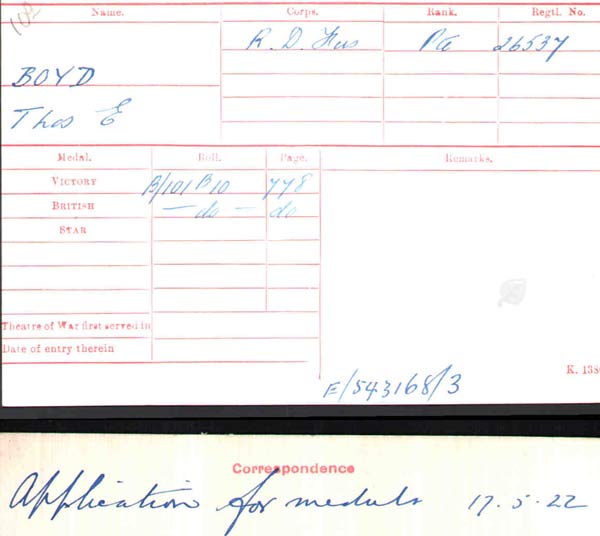 102
Name. Corps. Rank. Regtl. No.
R. D. Fus Pte 26537
BOYD
Thos E
Medal. Roll. Page. Remarks.
VICTORY B/101 B10 778
BRITISH — do — do
STAR
Theatre of War first served in
Date of entry therein
K. 1380
E/543168/3
Correspondence
Application for medals 17.5.22